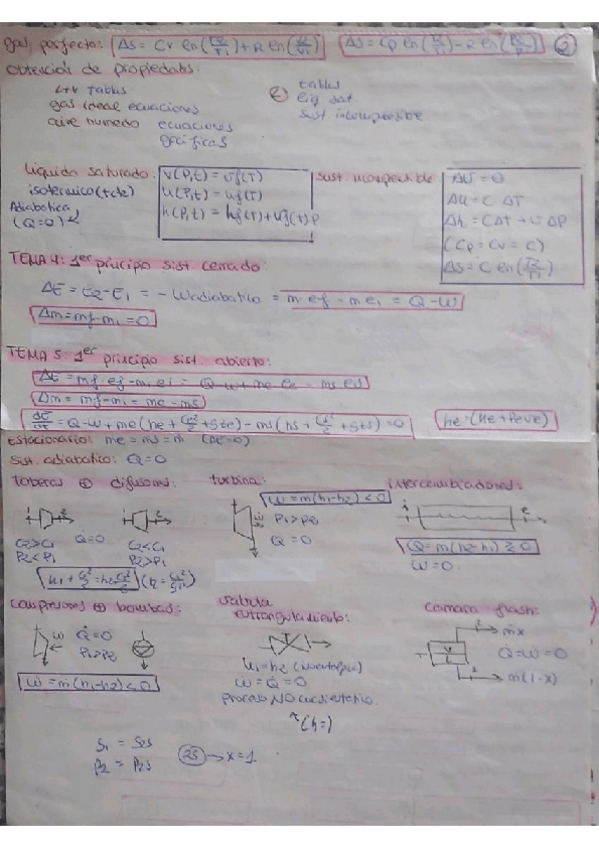 gas perfecto: Δs = Cv ln(T2/T1) + R ln(V2/V1) Δs = Cp ln(T2/T1) - R ln(P2/P1) 2
Obtención de propiedades:
L+V Tablas
gas ideal ecuaciones
aire humedo ecuaciones
gráficas
L
tablas
liq sat
sust incompresible
Liquido saturado:
isotermico (T=cte)
Adiabatica
(Q=0)
v(P,t) = vf(T)
u(P,t) = uf(T)
h(P,t) = hf(T) + vf(t)P
sust. incompresible
Δv = 0
Δu = C ΔT
Δh = CΔT + v ΔP
(Cp = Cv = C)
Δs = C ln(T2/T1)
TEMA 4: 1er principio sist cerrado
ΔE = E2 - E1 = - Wadiabatico = m·ef - m ei = Q - W
Δm = mf - mi = 0
TEMA 5: 1er principio sist. abierto:
ΔE = mf·ef - mi·ei = Q - W + me ee - ms es
Δm = mf - mi = me - ms
= Q - W + me (he + + gze) - ms (hs + + gzs) = 0
he = (ue + Peve)
Estacionario: me = ms = m (ΔE=0)
Sist. adiabatico: Q=0
toberas difusores:
C2>C1 Q=0 C2<C1
P2<P1 P2>P1
turbina:
P1>P2
Q = 0
intercambiadores:
Q = m(h2-h1) ≷ 0
W = 0
compresores bombas:
W Q=0
W = m(h1-h2) < 0
valvula
estrangulamiento:
h1 = h2 (isoentalpica)
W = Q = 0
proceso NO
(h=)
camara flash:
mx
Q=W=0
m(1-x)
S1 = S2s
P2 = P2s
2s → x=1